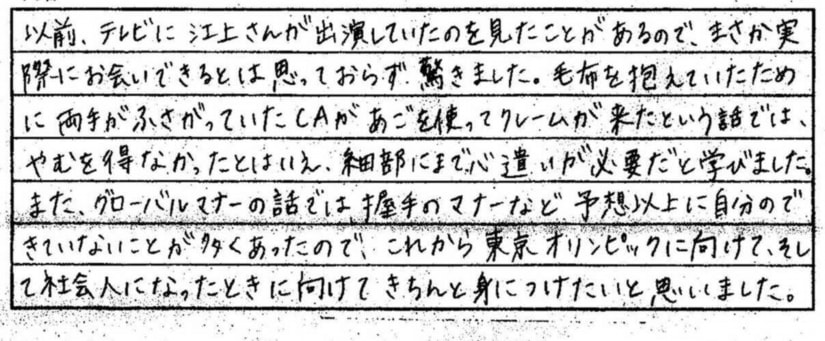 以前、テレビに江上さんが出演していたのを見たことがあるので、まさか実
際にお会いできるとは思っておらず驚きました。毛布を抱えていたため
に両手がふさがっていたCAがあごを使ってクレームが来たという話では、
やむを得なかったとはいえ、細部にまで心遣いが必要だと学びました。
また、グローバルマナーの話では握手のマナーなど予想以上に自分ので
きていないことが多くあったので、これから東京オリンピックに向けて、そし
て社会人になったときに向けてきちんと身につけたいと思いました。